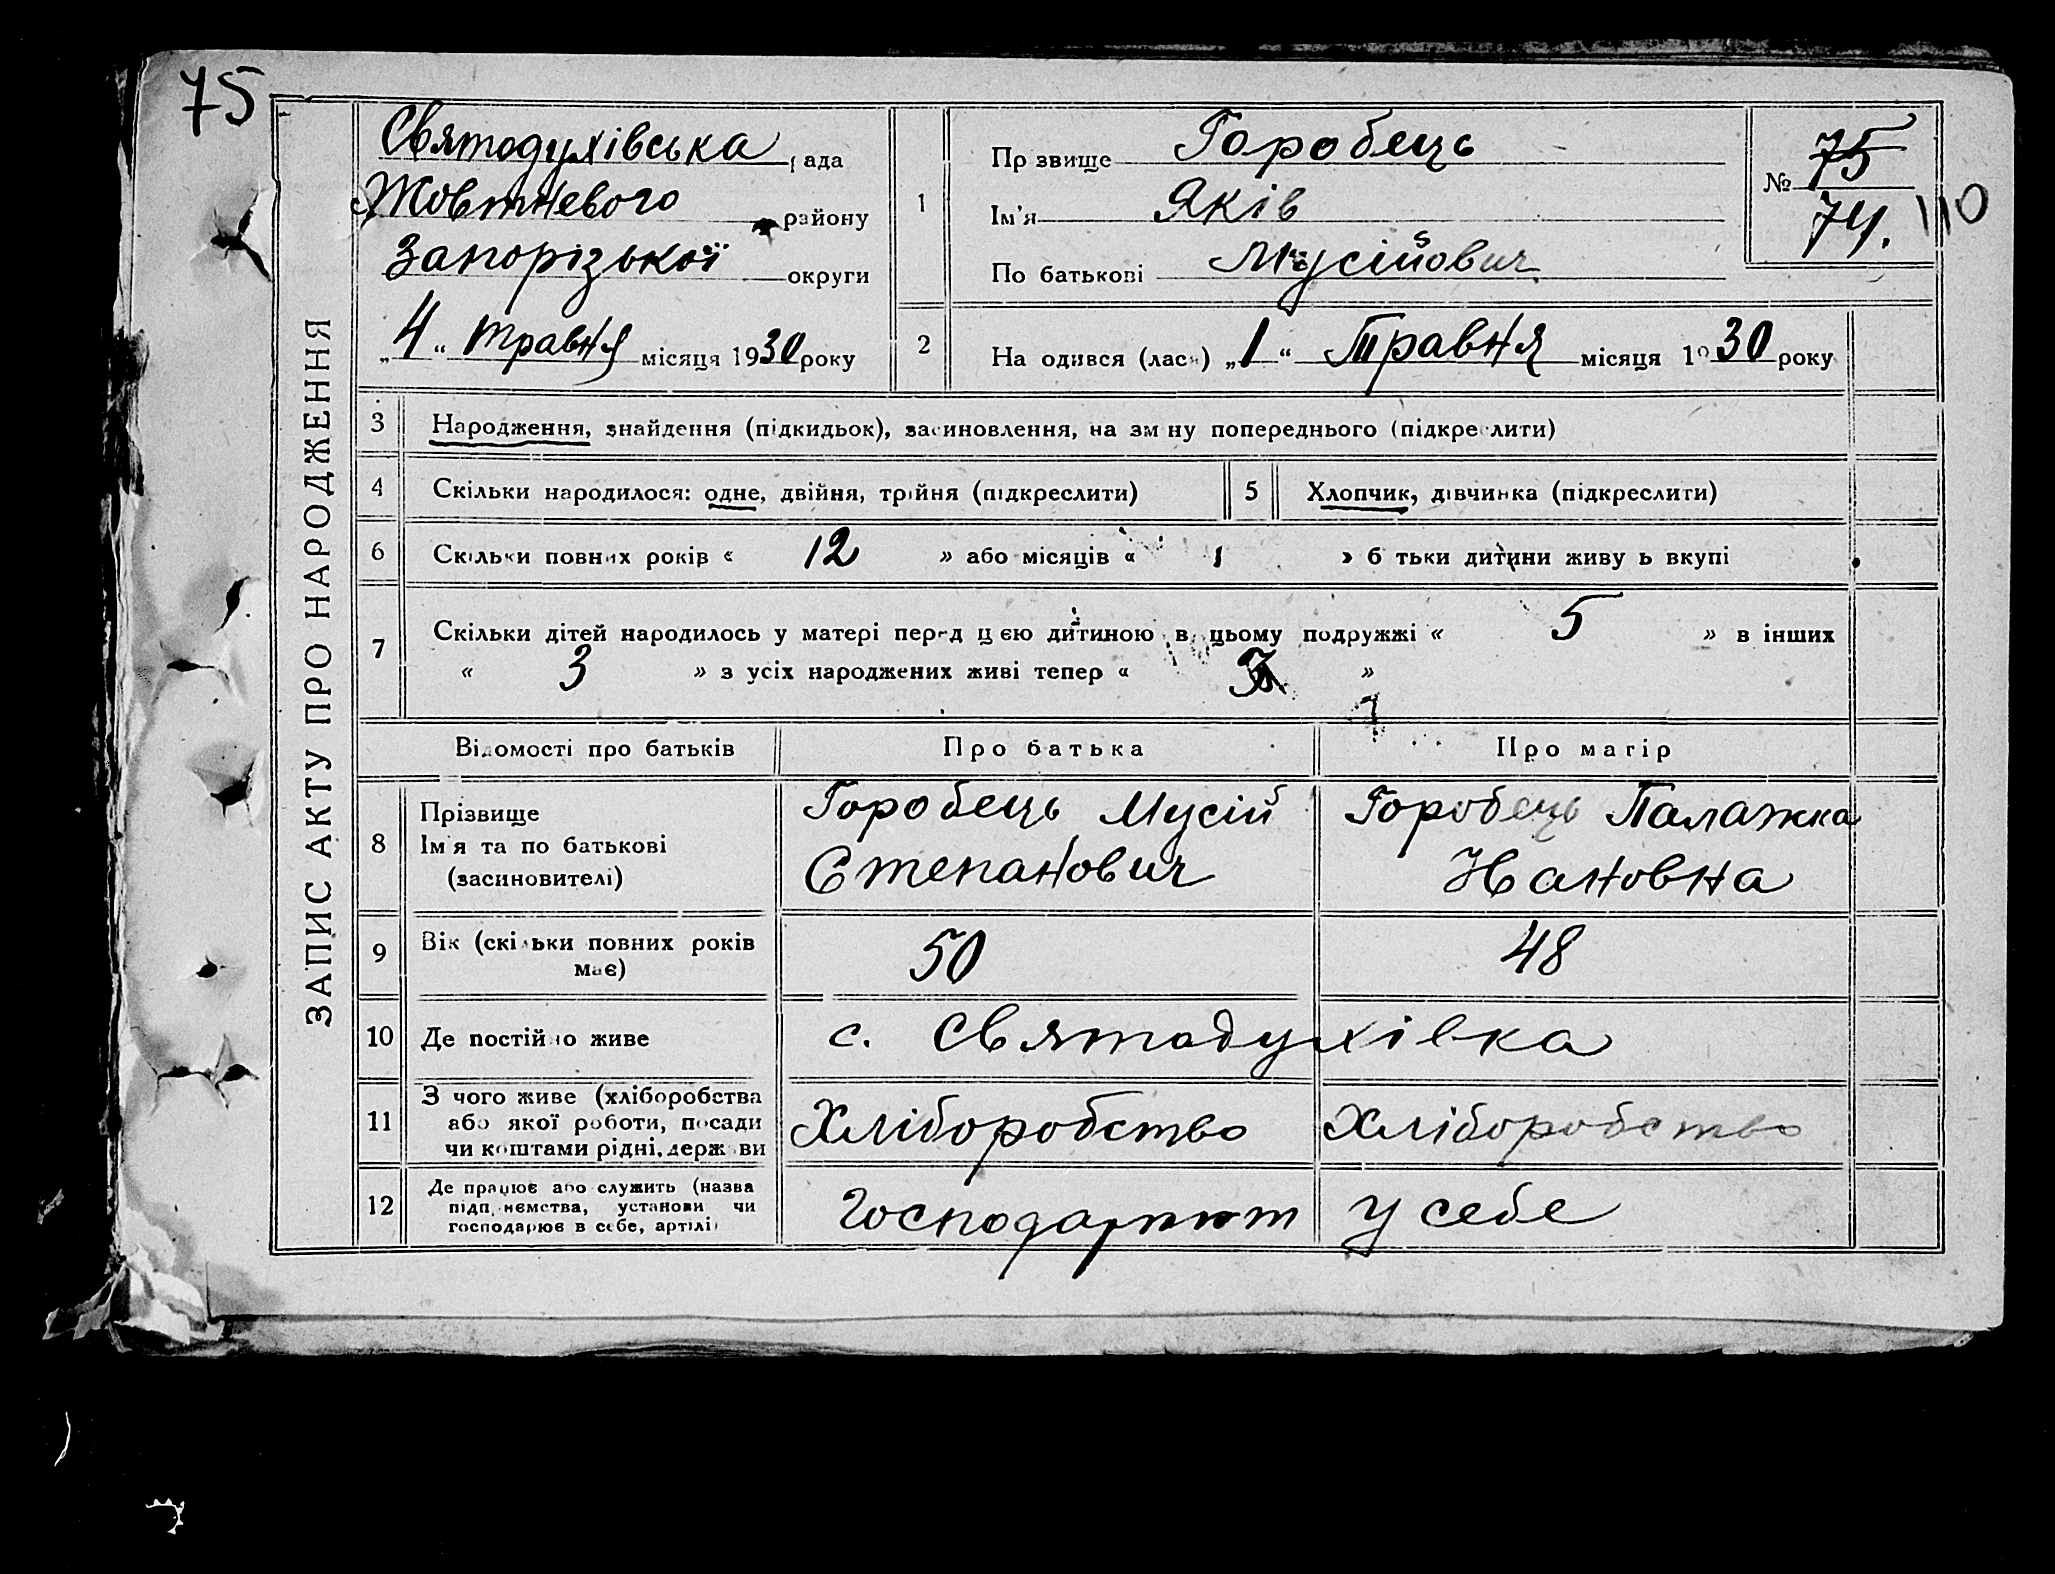 75
ЗАПИС АКТУ ПРО НАРОДЖЕННЯ
Святодухівська рада
Жовтневого району
Запорізької округи
„4“ травня місяця 1930 року
1 Прзвище Горобець
Ім'я Яків
По батькові Мусійович
№ 75
74. 110
2 На одився (лася) „1“ Травня місяця 1930 року
3 Народження, знайдення (підкидьок), засиновлення, на зм ну попереднього (підкреслити)
4 Скільки народилося: одне, двійня, трійня (підкреслити) 5 Хлопчик, дівчинка (підкреслити)
6 Скільки повних років « 12 » або місяців « 1 » б тьки дитини живу ь вкупі
7 Скільки дітей народилось у матері перед цією дитиною в цьому подружжі « 5 » в інших
« 3 » з усіх народжених живі тепер « »
Відомості про батьків Про батька Про матір
8 Прізвище
Ім'я та по батькові
(засиновителі)
Горобець Мусій
Степанович
Горобець Палажка
9 Вік (скільки повних років
має)
50 48
10 Де постійно живе с. Святодухівка
11 З чого живе (хліборобства
або якої роботи, посади
чи коштами рідні, держави
Хліборобство Хліборобство
12 Де працює або служить (назва
підприємства, установи чи
господарює в себе, артілі)
Господарюют у себе